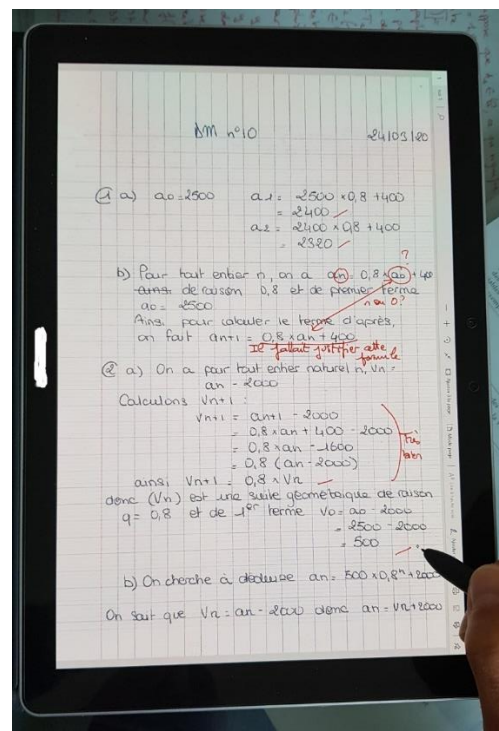 DM n°10 24/03/20
① a) a0 = 2500 a1 = 2500 x 0,8 + 400
= 2400
a2 = 2400 x 0,8 + 400
= 2320
?
b) Pour tout entier n, on a an = 0,8 x a0 + 400
ainsi de raison 0,8 et de premier terme
n ou 0?
a0 = 2500
Ainsi pour calculer le terme d'après,
on fait an+1 = 0,8 x an + 400
Il fallait justifier cette
formule
② a) On a pour tout entier naturel n, Vn =
an - 2000
Calculons Vn+1 :
Vn+1 = an+1 - 2000
= 0,8 x an + 400 - 2000
= 0,8 x an - 1600
= 0,8 (an - 2000)
Très
bien
ainsi Vn+1 = 0,8 x Vn
donc (Vn) est une suite géométrique de raison
q = 0,8 et de 1er terme V0 = a0 - 2000
= 2500 - 2000
= 500
b) On cherche à déduire an = 500 x 0,8^n + 2000
On sait que Vn = an - 2000 donc an = Vn + 2000